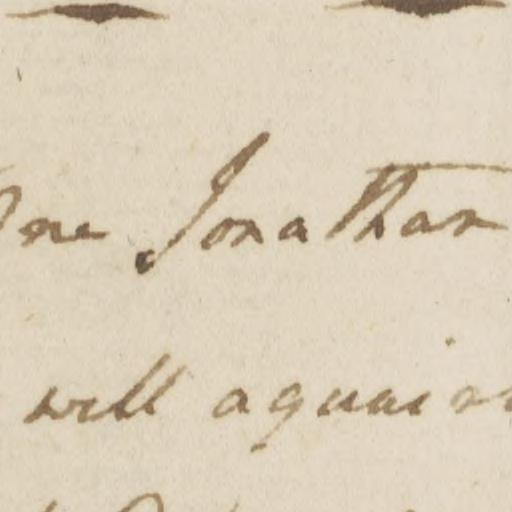 One Jonathan
will aquain